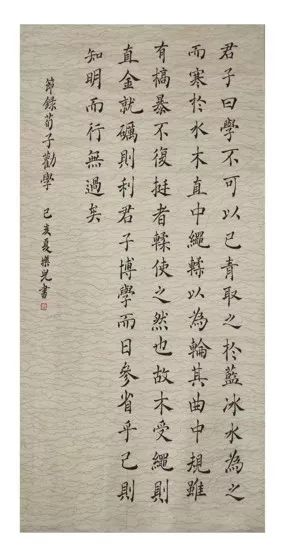 君子曰學不可以已青取之於藍冰水為之
而寒於水木直中繩輮以為輪其曲中規雖
有槁暴不復挺者輮使之然也故木受繩則
直金就礪則利君子博學而日參省乎己則
知明而行無過矣
節錄荀子勸學 己亥夏樂書